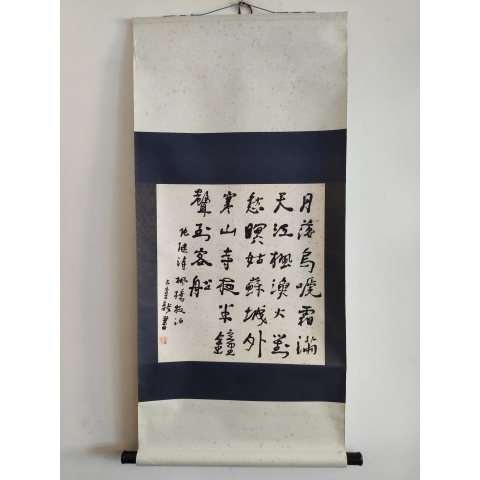 月落烏嗁霜滿
天江楓漁火對
愁眠姑蘇城外
寒山寺夜半鐘
聲到客船
张继詩楓橋夜泊
書